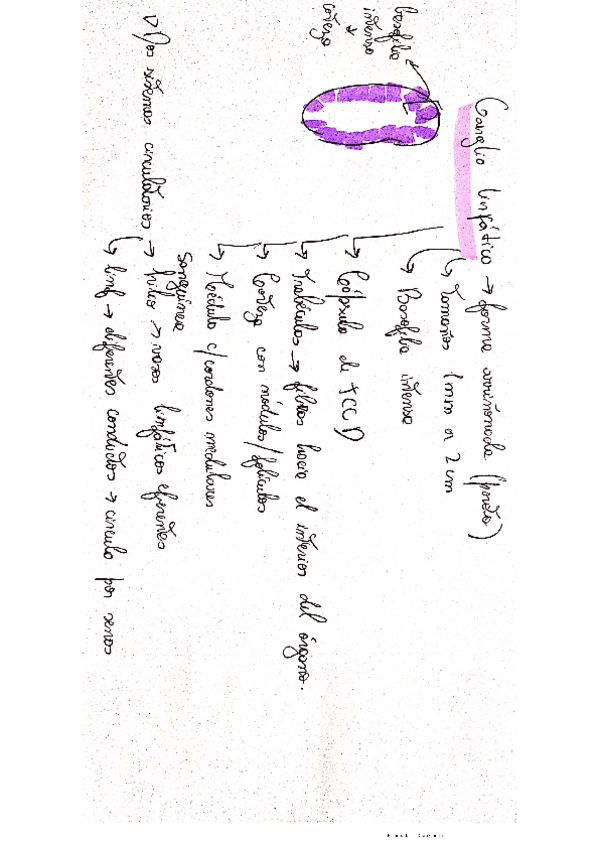 Ganglio linfático → forma arriñonada (poroto)
↳ Tamaños 1mm a 2cm
↳ Basofilia intensa
↳ Cápsula de TCCD
↳ Trabéculas → fibras hacia el interior del órgano.
↳ Corteza con nódulos/folículos
↳ Médula c/cordones medulares
basofilia
intensa
↓
corteza
▷ Dos sistemas circulatorios → hilio → vasos linfáticos eferentes
Sanguínea
↳ linf → diferentes conductos → circula por senos